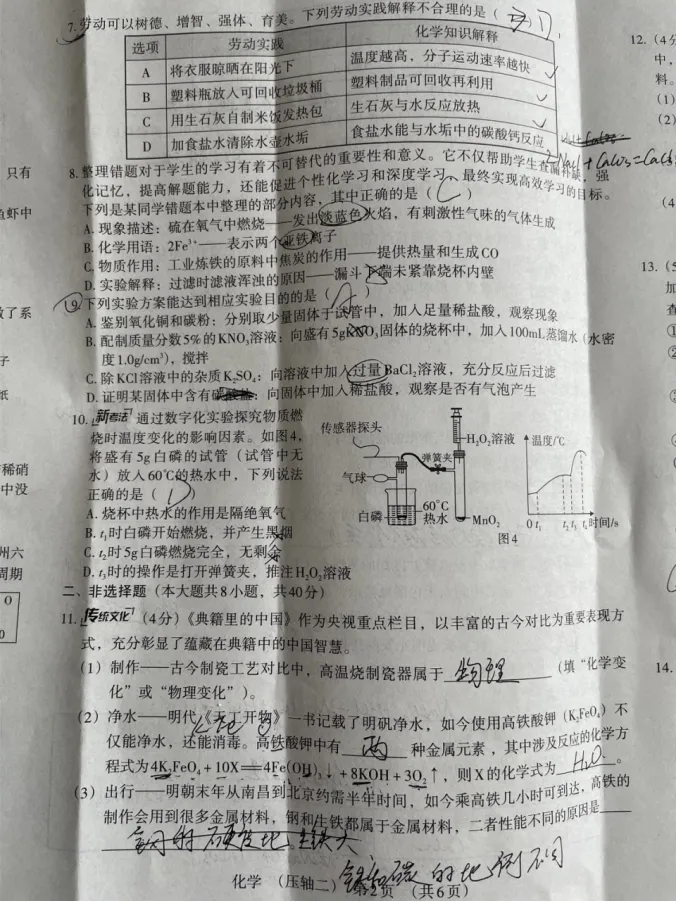 7. 劳动可以树德、增智、强体、育美。下列劳动实践解释不合理的是（ D ）
选项 劳动实践 化学知识解释
A 将衣服晾晒在阳光下 温度越高，分子运动速率越快
B 塑料瓶放入可回收垃圾桶 塑料制品可回收再利用
C 用生石灰自制米饭发热包 生石灰与水反应放热
D 加食盐水清除水壶水垢 食盐水能与水垢中的碳酸钙反应
8. 整理错题对于学生的学习有着不可替代的重要性和意义。它不仅帮助学生查漏补缺，强
化记忆，提高解题能力，还能促进个性化学习和深度学习，最终实现高效学习的目标。
下列是某同学错题本中整理的部分内容，其中正确的是（ C ）
A. 现象描述：硫在氧气中燃烧——发出淡蓝色火焰，有刺激性气味的气体生成
B. 化学用语：2Fe³⁺——表示两个亚铁离子
C. 物质作用：工业炼铁的原料中焦炭的作用——提供热量和生成CO
D. 实验解释：过滤时滤液浑浊的原因——漏斗下端未紧靠烧杯内壁
9. 下列实验方案能达到相应实验目的的是（ A ）
A. 鉴别氧化铜和碳粉：分别取少量固体于试管中，加入足量稀盐酸，观察现象
B. 配制质量分数5%的KNO₃溶液：向盛有5gKNO₃固体的烧杯中，加入100mL蒸馏水（水密
度1.0g/cm³），搅拌
C. 除KCl溶液中的杂质K₂SO₄：向溶液中加入过量BaCl₂溶液，充分反应后过滤
D. 证明某固体中含有：向固体中加入稀盐酸，观察是否有气泡产生
10. 新考法 通过数字化实验探究物质燃
烧时温度变化的影响因素。如图4，
将盛有5g白磷的试管（试管中无
水）放入60℃的热水中，下列说法
正确的是（ D ）
A. 烧杯中热水的作用是隔绝氧气
B. t₁时白磷开始燃烧，并产生黑烟
C. t₂时5g白磷燃烧完全，无剩余
D. t₃时的操作是打开弹簧夹，推注H₂O₂溶液
传感器探头
H₂O₂溶液
弹簧夹
气球
白磷
60℃
热水
MnO₂
温度/℃
0 t₁ t₂ t₃ t₄ 时间/s
图4
二、非选择题（本大题共8小题，共40分）
11. 传统文化（4分）《典籍里的中国》作为央视重点栏目，以丰富的古今对比为重要表现方
式，充分彰显了蕴藏在典籍中的中国智慧。
（1）制作——古今制瓷工艺对比中，高温烧制瓷器属于 物理 （填“化学变
化”或“物理变化”）。
（2）净水——明代《天工开物》一书记载了明矾净水，如今使用高铁酸钾（K₂FeO₄）不
仅能净水，还能消毒。高铁酸钾中有 两 种金属元素，其中涉及反应的化学方
程式为4K₂FeO₄+10X=4Fe(OH)₃↓+8KOH+3O₂↑，则X的化学式为 H₂O 。
（3）出行——明朝末年从南昌到北京约需半年时间，如今乘高铁几小时可到达，高铁的
制作会用到很多金属材料，钢和生铁都属于金属材料，二者性能不同的原因是
硬度比生铁大
碳的比例不同
化学 （压轴二） 第2页 （共6页）
只有
鱼虾中
做了系
子
纸
稀硝
中没
州六
周期
12.（4分
中，
料。
（1）
（2）
（4
13.（5
加
查
①
②
14.